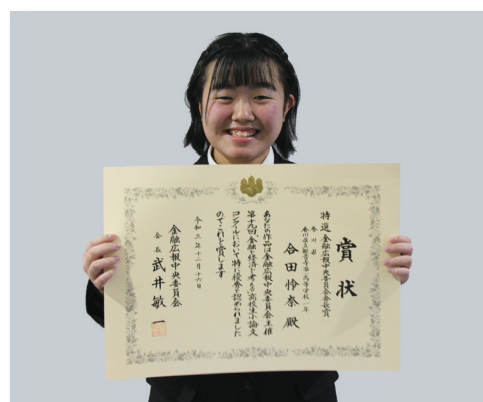 賞状
特選 金融広報中央委員会会長賞
香川県
香川県立観音寺第一高等学校一年
合田怜奈殿
あなたの作品は金融広報中央委員会主催
第十九回「金融と経済を考える」高校生小論文
コンクールにおいて特に優秀と認められました
のでこれを賞します
令和三年十二月十六日
金融広報中央委員会
会長 武井敏一